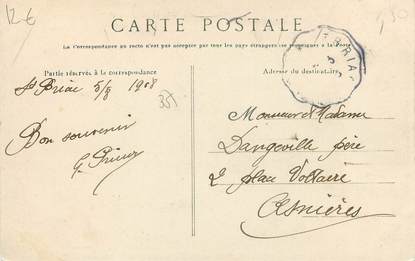 12€
CARTE POSTALE
La correspondance au recto n'est pas acceptée par tous les pays étrangers (se renseigner à la Poste)
Partie réservée à la correspondance
Adresse du destinataire
St Briac 5/8 1908
35
Bon souvenir
G.
Monsieur et Madame
Dangeville père
2 place Voltaire
Asnières